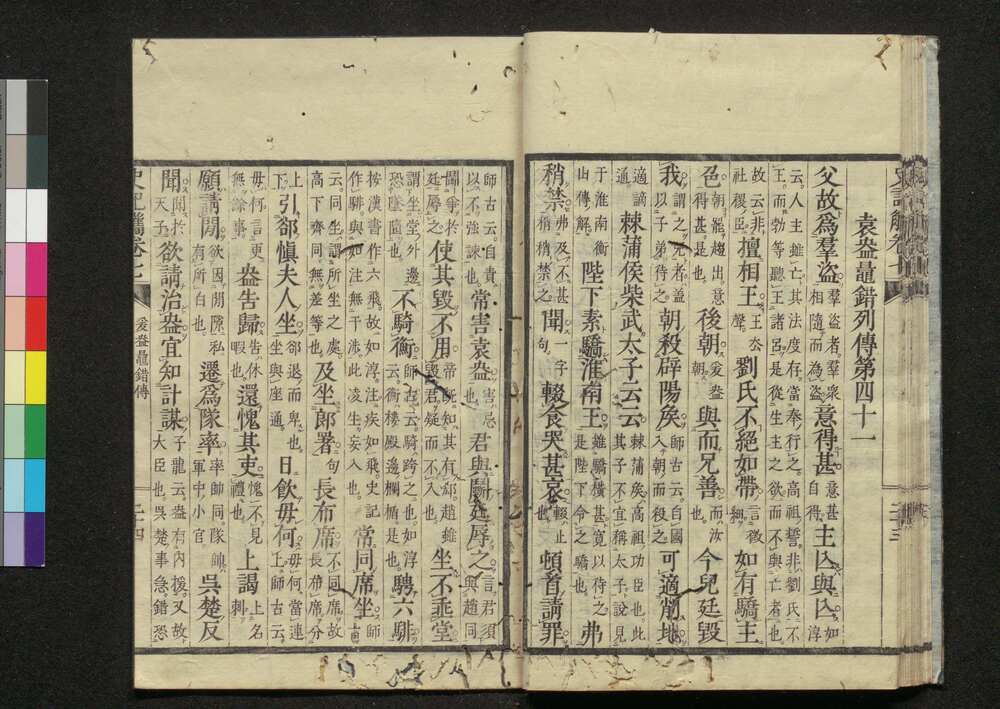 袁盎鼂錯列傳第四十一
父故爲羣盜羣盜者羣衆相隨而爲盜意得甚意甚自得主囚與囚如淳
云人主雖亡其法度存當奉行之高祖誓非劉氏不
王而勃等聽王諸呂是從生主之欲而不與亡者也
故云非社稷臣擅相王王去聲劉氏不絕如帶言微細如有驕主
色朝罷趨出意得甚是也後朝袁盎朝與而兄善而汝也今兒廷毀
我謂之兄者蓋以子弟待之朝殺辟陽矦師古云自國入朝而殺之可適削地
適謫通棘蒲侯柴武太子云云棘蒲矦高祖功臣也此其子不宜稱太子說見
于淮南衡山傳解陛下素驕淮南王雖驕橫甚寬以待之是陛下令之驕也弗
稍禁弗及不甚稍稍禁之聞一字句輟食哭甚哀輟止也頓首請罪
師古云自責以不強諫也嘗害袁盎害忌也君與鬬廷辱之言君須與趙同
鬬爭於廷辱之使其毀不用帝旣知其有郤趙雖毀君疑而不入也坐不垂堂
謂坐堂外邊恐墜隤也不騎衡師古云騎跨之也如淳云衡樓殿邊欄楯是也騁六騑
按漢書作六飛故如淳注疾如飛史記作騑與如注無干涉此凌生妄入也常同席坐師
云同坐謂所坐之處高下齊同無差等也及坐郎署句長布席不同席故長布席分
上下引郤愼夫人坐郤退而卑也坐與座通日飲毋何毋何當連上師古云
毋何言更無餘事盎告歸告休暇也還愧其吏愧不見禮也上謁上名刺
願請閒欲因閒隙私有所白也遷爲隊率率帥同隊帥軍中小官吳楚反
聞聞於天子欲請治盎宜知計謀子龍云盎有內援又故大臣也吳楚事急錯恐
袁盎鼂錯傳
二十四